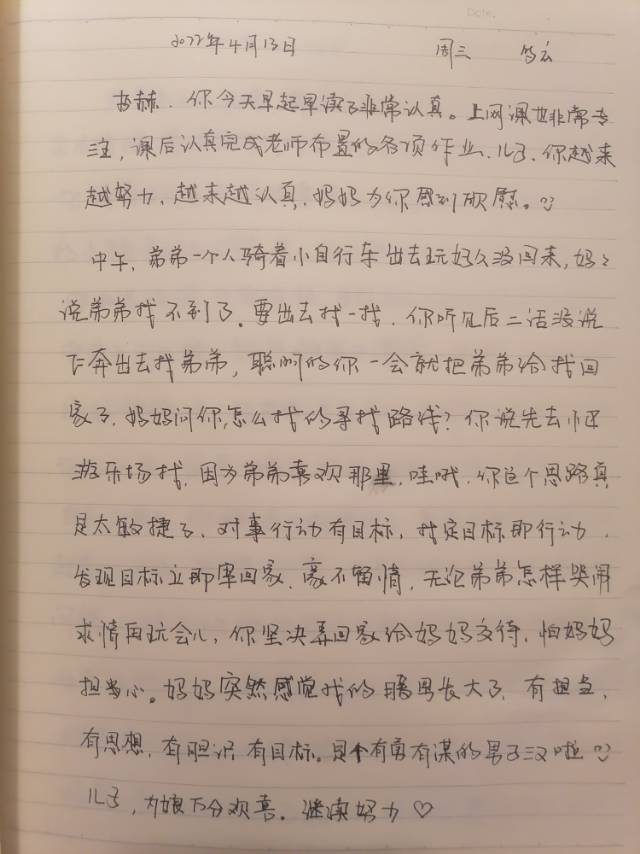 Date.
2022年4月13日 周三 多云
, 你今天早起早读了非常认真。上网课也非常专
注, 课后认真完成老师布置的各项作业, 儿子, 你越来
越努力, 越来越认真, 妈妈为你感到欣慰。
中午, 弟弟一个人骑着小自行车出去玩好久没回来, 妈妈
说弟弟找不到了, 要出去找一找, 你听见后二话没说
飞奔出去找弟弟, 聪明的你一会就把弟弟给找回
家了, 妈妈问你, 怎么找的寻找路线? 你说先去小区
游乐场找, 因为弟弟喜欢那里, 哇哦, 你这个思路真
是太敏捷了, 对事行动有目标, 找定目标即行动,
发现目标立即率回家, 豪不留情, 无论弟弟怎样哭闹
求情再玩会儿, 你坚决弄回家给妈妈交待, 怕妈妈
担当心。妈妈突然感觉我的男长大了, 有担当,
有思想, 有胆识 有目标。是个有勇有谋的男子汉啦
儿子, 为娘万分欢喜。继续努力♡